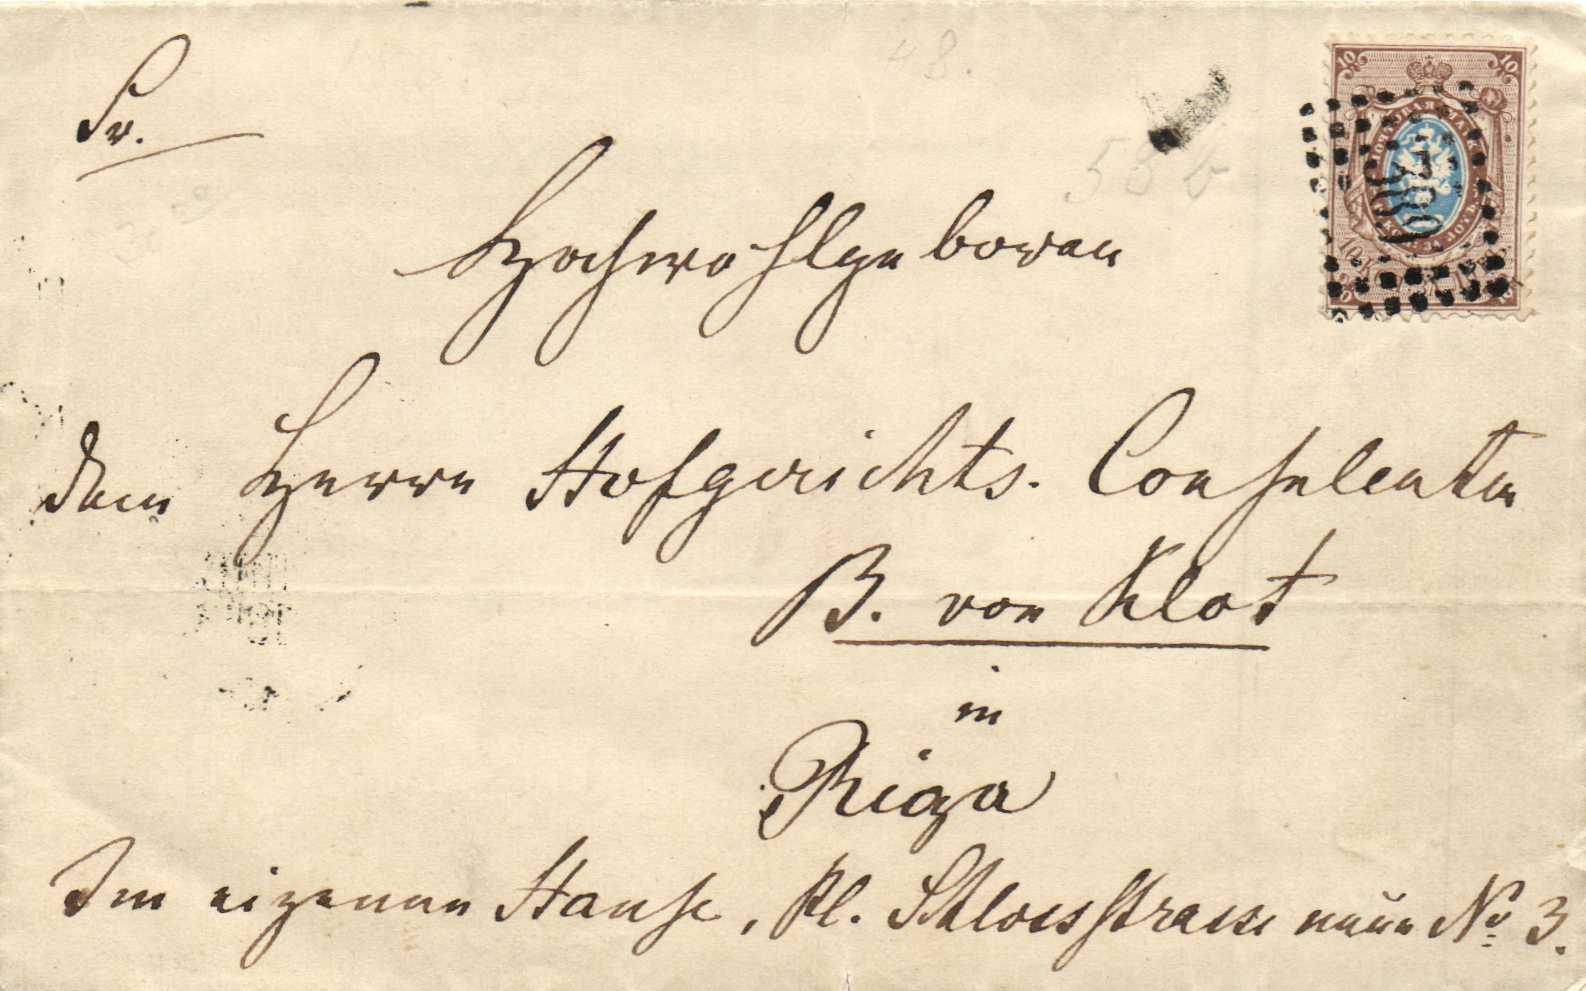 Sr.
Hochwohlgeboren
dem Herrn Hofgerichts. Consulenten
B. von Klot
in
Riga
Im eigenen Hause, Kl. Schlossstrasse neue No 3.
58 b
48.
10 10